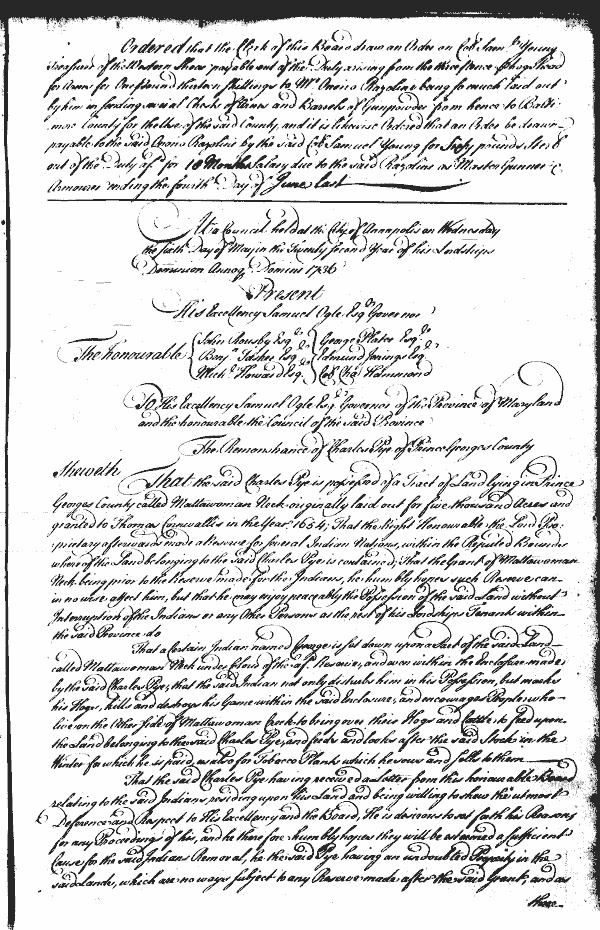 Ordered that the Clerk of this Board draw an Order on Col. Saml. Young
Treasurer of the Western Shore payable out of the Duty arising from the three pence Hogshead
for Arms for One pound thirteen shillings to Mr. Onorio Razolini being so much laid out
by him in sending several Chests of Arms and Barrels of Gunpowder from hence to Balti
more County for the Use of the said County, and it is likewise Ordered that an Order be drawn
payable to the said Onorio Razolini by the said Col. Samuel Young for Sixty pounds Sterl
out of the Duty afd. for 18 Months Salary due to the said Razolini as Master Gunner &
Armourer ending the fourth Day of June last
At a Council held at the City of Annapolis on Wednesday
the sixth Day of May in the Twenty Second Year of his Lordships
Dominion Annoq Domini 1736
Present
His Excellency Samuel Ogle Esqr. Governor
The honourable
John Rousby Esqr. George Plater Esqr.
Benja. Tasker Esqr. Edmund Jenings Esqr.
Michl. Howard Esqr. Col. Chas. Hammond
To His Excellency Samuel Ogle Esqr. Governor of the Province of Maryland
and the honourable the Council of the said Province
The Remonstrance of Charles Pye of Prince Georges County
Sheweth
That the said Charles Pye is possessed of a Tract of Land lying in Prince
Georges County called Mattawoman Neck originally laid out for five thousand Acres and
granted to Thomas Cornwallis in the Year 1654; That the Right Honourable the Lord Pro-
prietary afterwards made a Reserve for several Indian Nations, within the Reputed Bounds
whereof the Land belonging to the said Charles Pye is contained; That the Grant of Mattawoman
Neck being prior to the Reserve made for the Indians, he humbly hopes such Reserve can
in no wise affect him, but that he may enjoy peaceably the Possession of the said Land without
Interruption of the Indians or any Other Persons as the rest of his Lordships Tenants within
the said Province do
That a Certain Indian named George is set down upon a Part of the said Land
called Mattawoman Neck under Colour of the afd. Reserve, and even within the Enclosure made
by the said Charles Pye; that the said Indian not only disturbs him in his Possession, but marks
his Hogs, kills and destroys his Game within the said Enclosure, and encourages People who
live on the Other side of Mattawoman Creek to bring over their Hogs and Cattle to feed upon
the Land belonging to the said Charles Pye, and feeds and looks after the said Stock in the
Winter for which he is paid, as also for Tobacco Plants which he sows and sells to them
That the said Charles Pye having received a Letter from this honourable Board
relating to the said Indians residing upon his Land and being willing to show the utmost
Deference and Respect to His Excellency and the Board, He is desirous to set forth his Reasons
for any Proceedings of his, and he therefore humbly hopes they will be esteemed a sufficient
Cause for the said Indians Removal, he the said Pye having an undoubted Property in the
said Lands, which are no ways subject to any Reserve made after the said Grant, and as
there